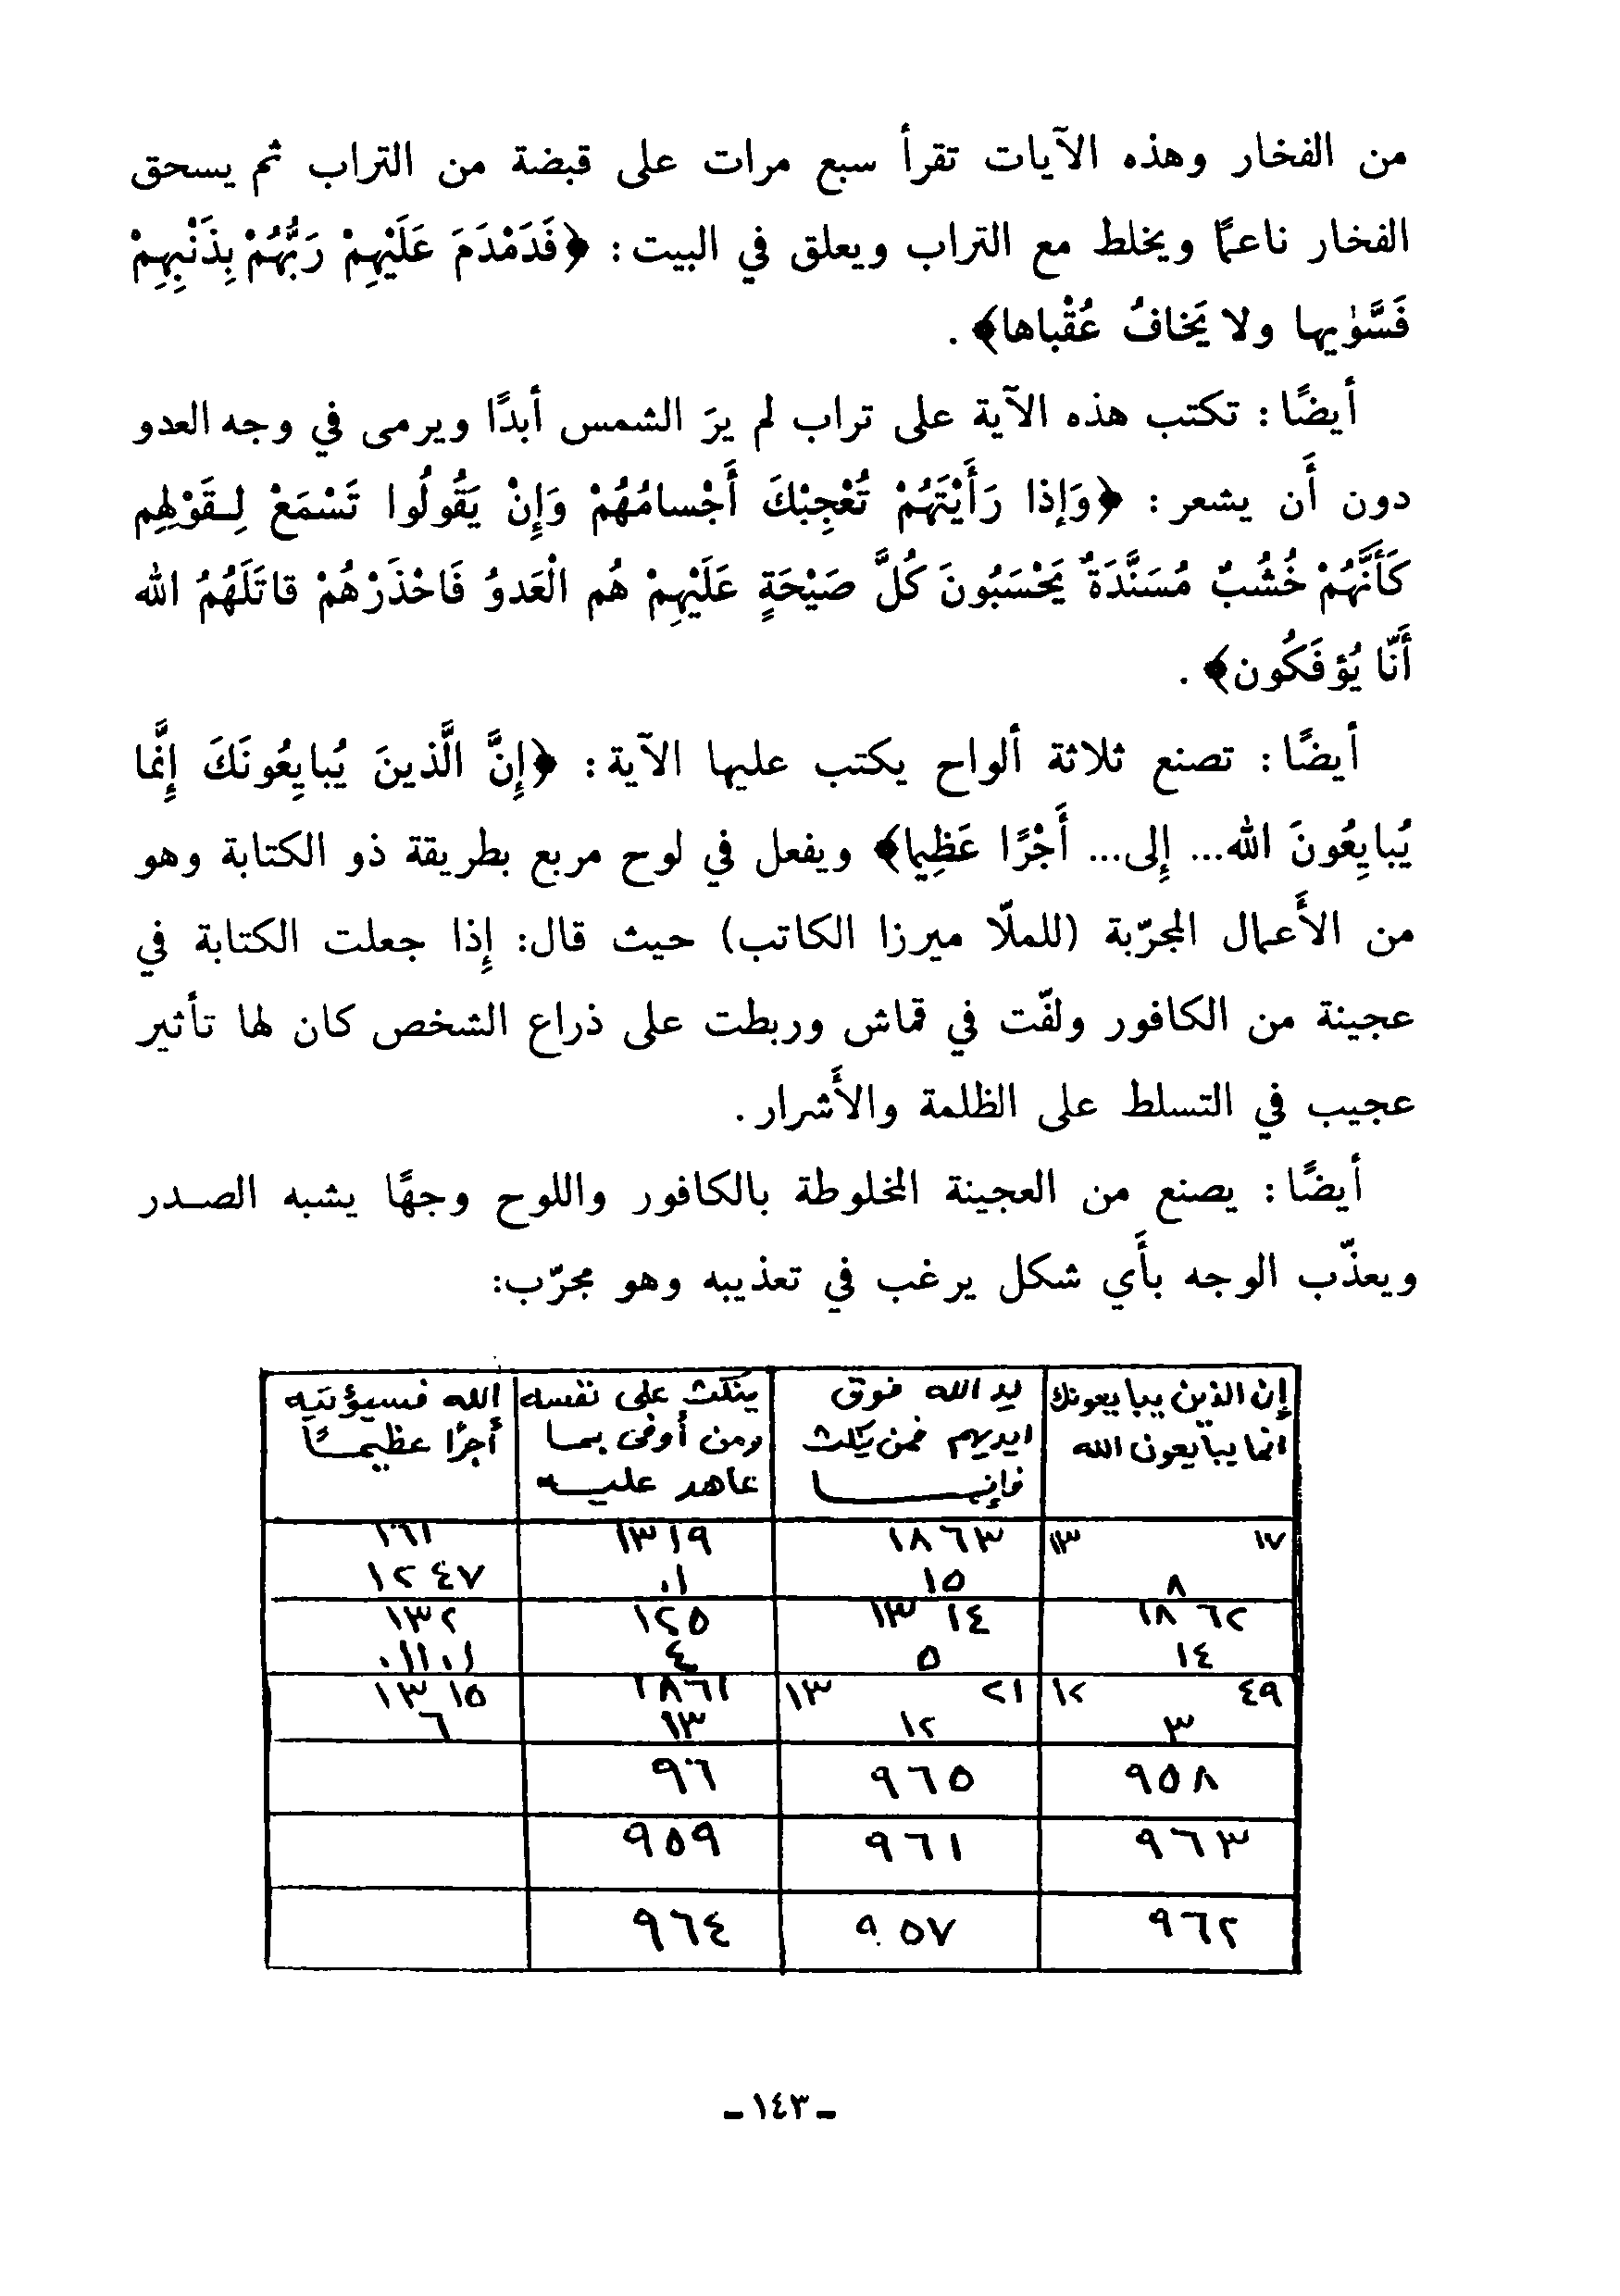 من الفخار وهذه الآيات تقرأ سبع مرات على قبضة من التراب ثم يسحق
الفخار ناعمًا ويخلط مع التراب ويعلق في البيت: ﴿فَدَمْدَمَ عَلَيْهِمْ رَبُّهُمْ بِذَنْبِهِمْ
فَسَّوٰيها ولا يَخافُ عُقْباها﴾.
أيضًا: تكتب هذه الآية على تراب لم يرَ الشمس أبدًا ويرمى في وجه العدو
دون أَن يشعر: ﴿وَإذا رَأَيْتَهُمْ تُعْجِبْكَ أَجْسامُهُمْ وَإِنْ يَقُولُوا تَسْمَعْ لِـقَوْلِهِم
كَأَنَّهُمْ خُشُبٌ مُسَنَّدَةٌ يَحْسَبُونَ كُلَّ صَيْحَةٍ عَلَيْهِمْ هُم الْعَدوُ فَاحْذَرْهُمْ قاتَلَهُمُ الله
أَنّا يُؤفَكُون﴾.
أيضًا: تصنع ثلاثة ألواح يكتب عليها الآية: ﴿إِنَّ الَّذينَ يُبايِعُونَكَ إِنَّما
يُبايِعُونَ الله... إِلى... أَجْرًا عَظِيما﴾ ويفعل في لوح مربع بطريقة ذو الكتابة وهو
من الأَعمال المجرّبة (للملّا ميرزا الكاتب) حيث قال: إِذا جعلت الكتابة في
عجينة من الكافور ولفّت في قماش وربطت على ذراع الشخص كان لها تأثير
عجيب في التسلط على الظلمة والأَشرار.
أيضًا: يصنع من العجينة المخلوطة بالكافور واللوح وجهًا يشبه الصـدر
ويعذّب الوجه بأَي شكل يرغب في تعذيبه وهو مجرّب:
إن الذين يبايعونك يد الله فوق ينكث على نفسه الله فسيؤتيه
انما يبايعون الله ايديهم فمن نكث ومن أوفى بمـا أجرًا عظيمـًا
فإنمـا عاهد عليـه
١٧ ١٣ ١٨٦٣ ١٣١٩ ١٦١
٨ ١٥ ٠١ ١٢٤٧
١٨٦٢ ١٣ ١٤ ١٢٥ ١٣٢
١٤ ٥ ٤ ٠١١٠١
٤٩ ١٢ ٢١ ١٣ ١٨٦١ ١٣١٥
٣ ١٢ ١٣ ٦
٩٥٨ ٩٦٥ ٩٦
٩٦٣ ٩٦١ ٩٥٩
٩٦٢ ٩٥٧ ٩٦٤
ـ ١٤٣ ـ